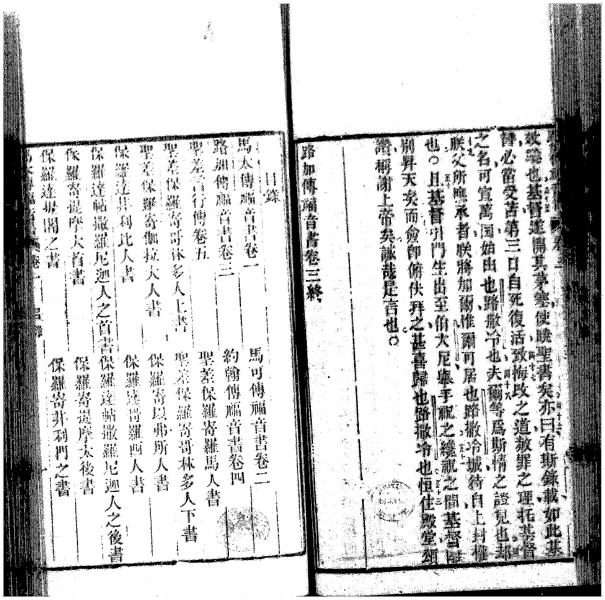 效驗也基督遂開其茅塞使曉聖書矣亦曰有斯錄載如此基
督必當受苦第三日自死復活致悔改之道赦罪之理托基督
之名可宣萬国始出也路撒冷也夫爾等爲斯情之證見也却
朕父所應承者朕將加爾惟爾可居也路撒冷城待自上封權
也○且基督引門生出至伯大尼舉手祝之纔祝之間基督
別昇天矣而僉卽俯伏拜之甚喜歸也路撒冷也恒住殿堂頌
讚稱謝上帝矣誠哉是言也○
路加傳福音書卷三終
目錄
馬太傳福音書卷一 馬可傳福音書卷二
路加傳福音書卷三 約翰傳福音書卷四
聖差言行傳卷五 聖差保羅寄羅馬人書
聖差保羅寄哥林多人上書 聖差保羅寄哥林多人下書
聖差保羅寄伽拉大人書 保羅寄以弗所人書
保羅達非利比人書 保羅達哥羅西人書
保羅達帖撒羅尼迦人之首書 保羅達帖撒羅尼迦人之後書
保羅寄提摩太首書 保羅寄提摩太後書
保羅達提都之書 保羅寄非利門之書